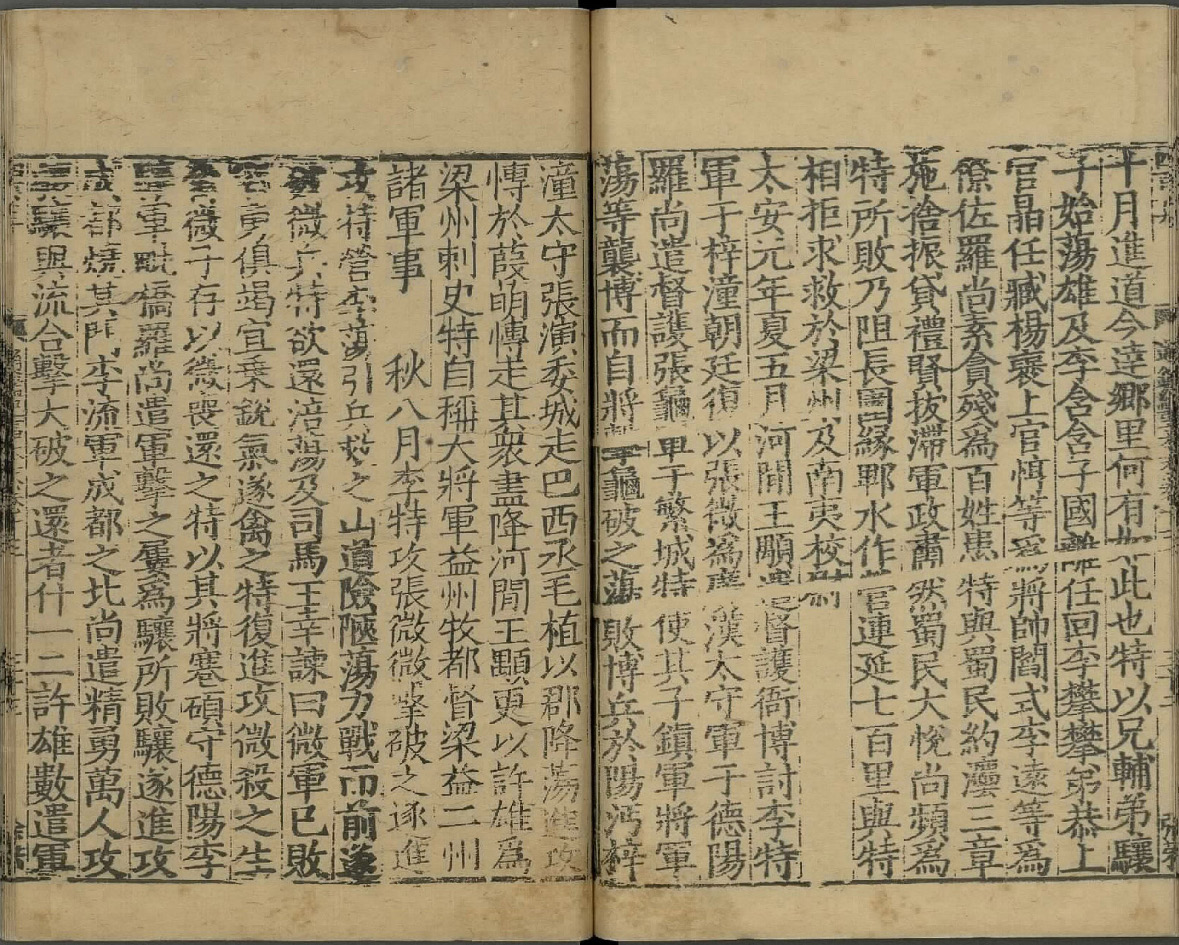 十月進道令達鄉里何有如此也特以兄輔弟驤
子始蕩雄及李含含子國離任回李攀攀弟恭上
官晶任臧楊褒上官惇等爲將帥閻式李遠等爲
僚佐羅尚素貪殘爲百姓患特與蜀民約灋三章
施捨振貸禮賢拔滯軍政肅然蜀民大悅尚頻爲
特所敗乃阻長圍緣郫水作營連延七百里與特
相拒求救於梁州及南夷校尉
太安元年夏五月河間王顒遣督護衙博討李特
軍于梓潼朝廷復以張微爲廣漢太守軍于德陽
羅尚遣督護張龜軍于繁城特使其子鎮軍將軍
蕩等襲博而自將擊龜破之蕩敗博兵於陽沔梓
潼太守張演委城走巴西丞毛植以郡降蕩進攻
博於葭萌博走其衆盡降河間王顒更以許雄爲
梁州刺史特自稱大將軍益州牧都督梁益二州
諸軍事 秋八月李特攻張微微擊破之遂進
攻特營李蕩引兵救之山道險陿蕩力戰而前遂
破微兵特欲還涪蕩及司馬王辛諫曰微軍已敗
智勇俱竭宜乘銳氣遂禽之特復進攻微殺之生
禽微子存以微喪還之特以其將騫碩守德陽李
驤軍毗橋羅尚遣軍擊之屢爲驤所敗驤遂進攻
成都燒其門李流軍成都之北尚遣精勇萬人攻
驤驤與流合擊大破之還者什一二許雄數遣軍